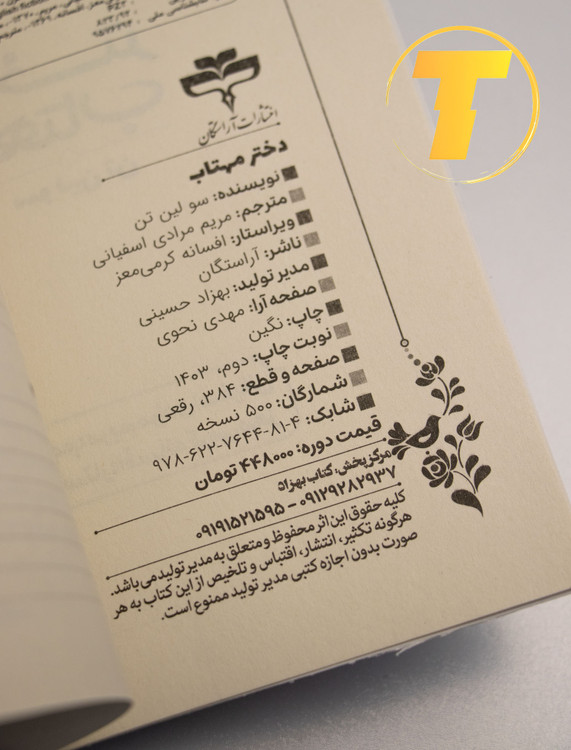 ۸۲۳/۹۲
۹۵۷۴۲۹۴
انتشارات آراستگان
دختر مهتاب
نویسنده: سو لین تن
مترجم: مریم مرادی اسفیانی
ویراستار: افسانه کرمی‌معز
ناشر: آراستگان
مدیر تولید: بهزاد حسینی
صفحه‌آرا: مهدی نحوی
چاپ: نگین
نوبت چاپ: دوم، ۱۴۰۳
صفحه و قطع: ۳۸۴، رقعی
شمارگان: ۵۰۰ نسخه
شابک: ۴-۸۱-۷۶۴۴-۶۲۲-۹۷۸
قیمت دوره: ۴۴۸۰۰۰ تومان
مرکز پخش: کتاب بهزاد
۰۹۱۲۹۲۸۲۹۳۷ - ۰۹۱۹۱۵۲۱۵۹۵
کلیه حقوق این اثر محفوظ و متعلق به مدیر تولید می‌باشد.
هرگونه تکثیر، انتشار، اقتباس و تلخیص از این کتاب به هر
صورت بدون اجازه کتبی مدیر تولید ممنوع است.
T